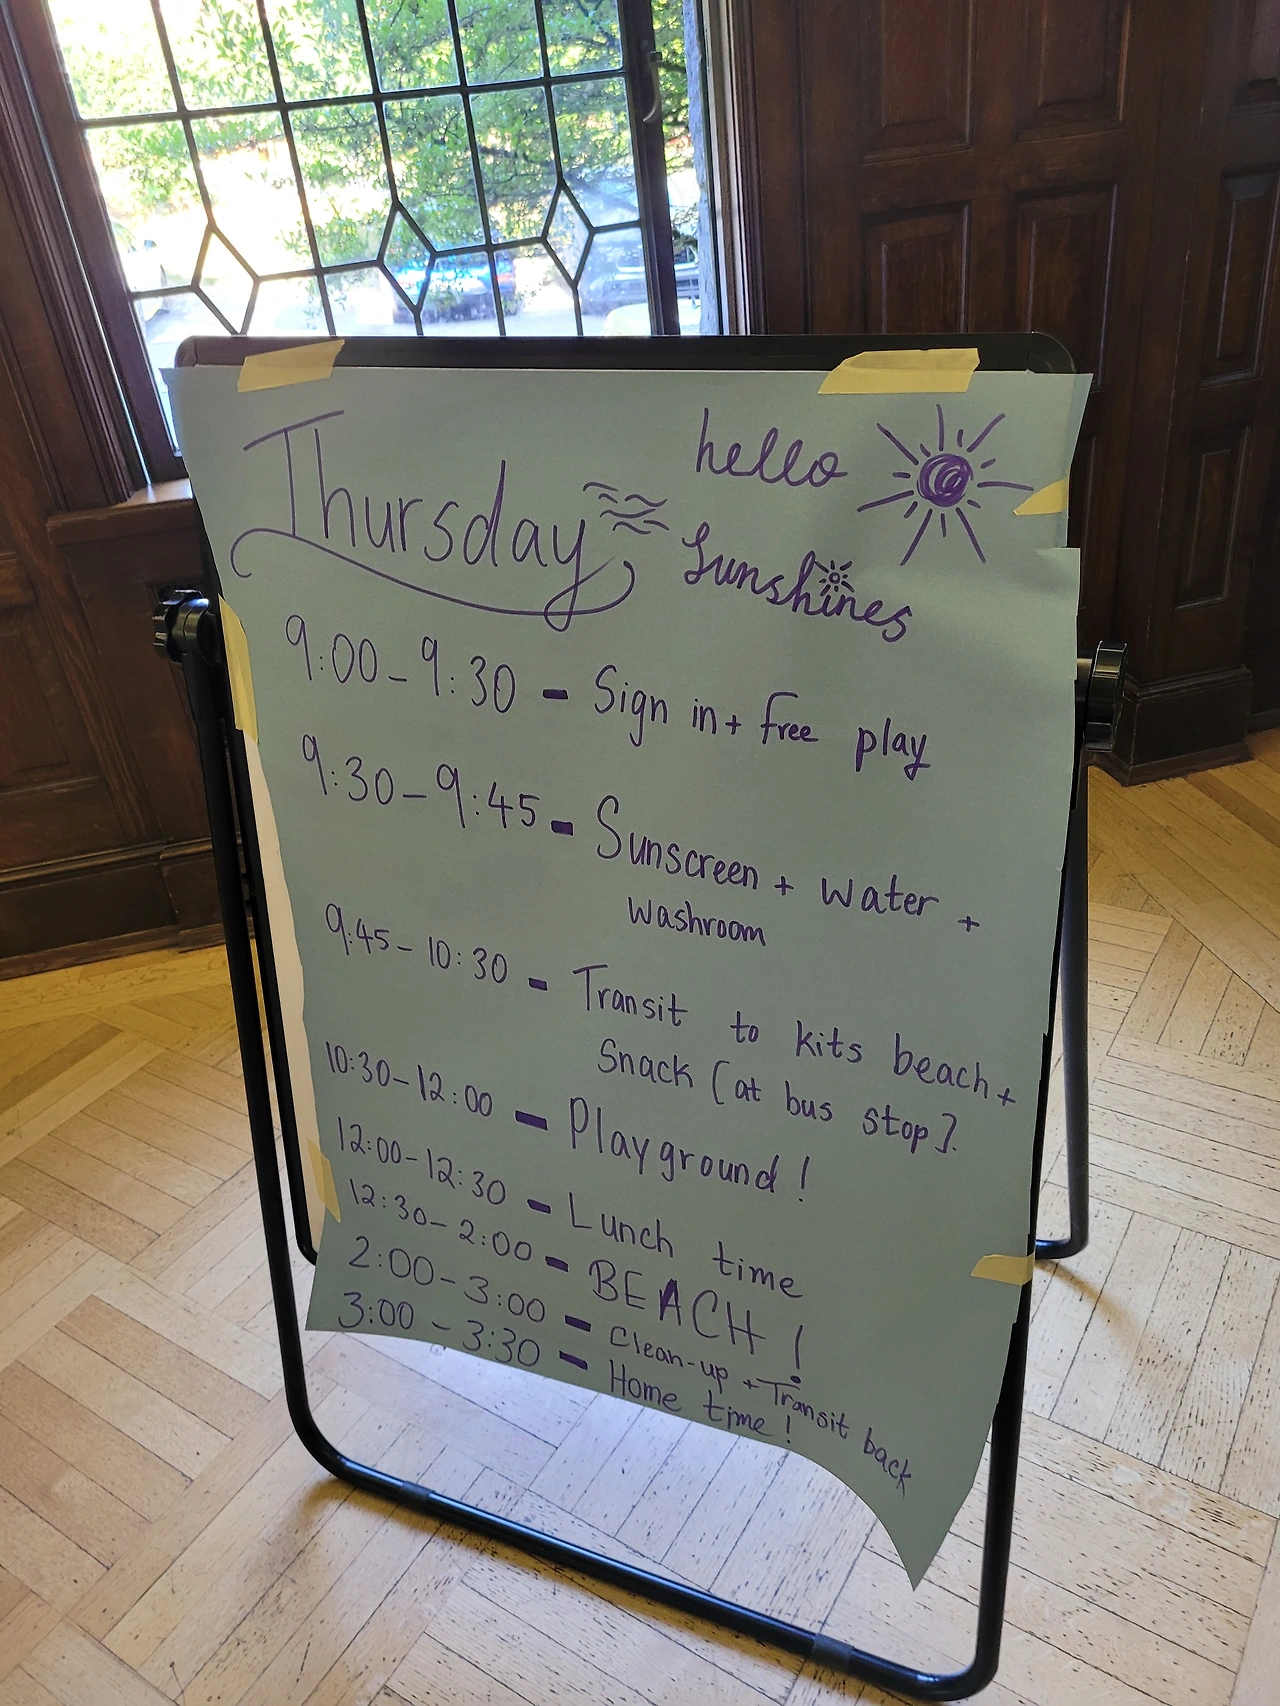 Thursday
hello
Sunshines
9:00 - 9:30 - Sign in + free play
9:30 - 9:45 - Sunscreen + water +
washroom
9:45 - 10:30 - Transit to kits beach +
Snack [at bus stop].
10:30 - 12:00 - Playground!
12:00 - 12:30 - Lunch time
12:30 - 2:00 - BEACH!
2:00 - 3:00 - Clean-up + Transit back
3:00 - 3:30 - Home time!